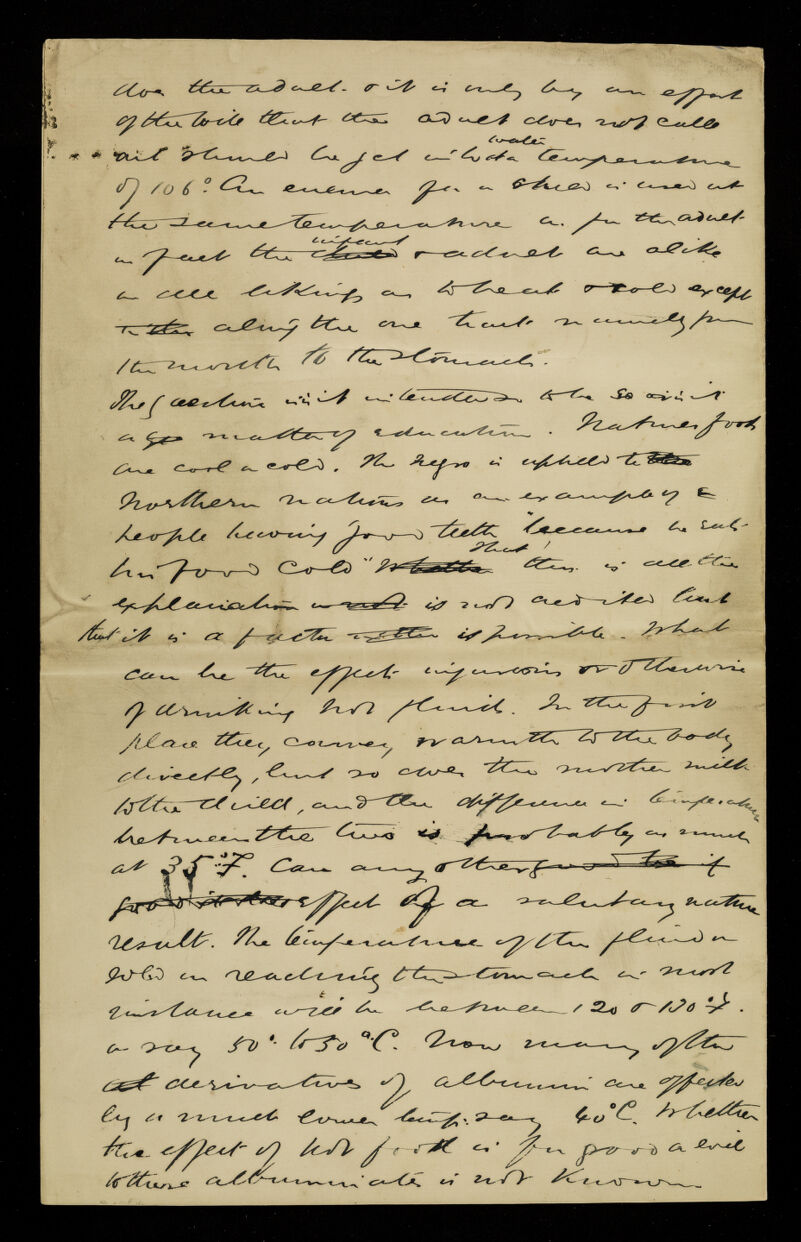 does the adult. & it is only by an effort
of the will that the adult does not call
out should he get into water at a temperature
of 106°. An enema for a child is used at
the same temperature as for the adult
in fact the child infant & adult are alike
in all likings as to heat & cold except
along the one tract namely from
the mouth to the stomach.
The question is it intended so to be so or is it
a matter of education. Natures foods
are cool or cold. The Negro is upheld to the
Northern nations as an example of a
people having good teeth "because he eats
his food cold" Whether that this is all the
explanation or not is not credited but
that it is a factor is possible. What
can be the effect injurious or otherwise
of drinking hot fluids. In the first
place they convey warmth to the body
directly, but so does the mother milk
to the child, and the difference in temperature
between the two is probably as much
as 35°F. Can any other good be if
good it does effect of a salutary nature
result. The temperature of the fluid or
solid on reaching the stomach in most
instance will be between 120 & 130°F.
or say 50° to 50°C. Now many of the
derivatives of albumin are affected
by a much lower temp. say 40°C. Whether
the effect of hot food is for good or evil
to these albuminates is not known